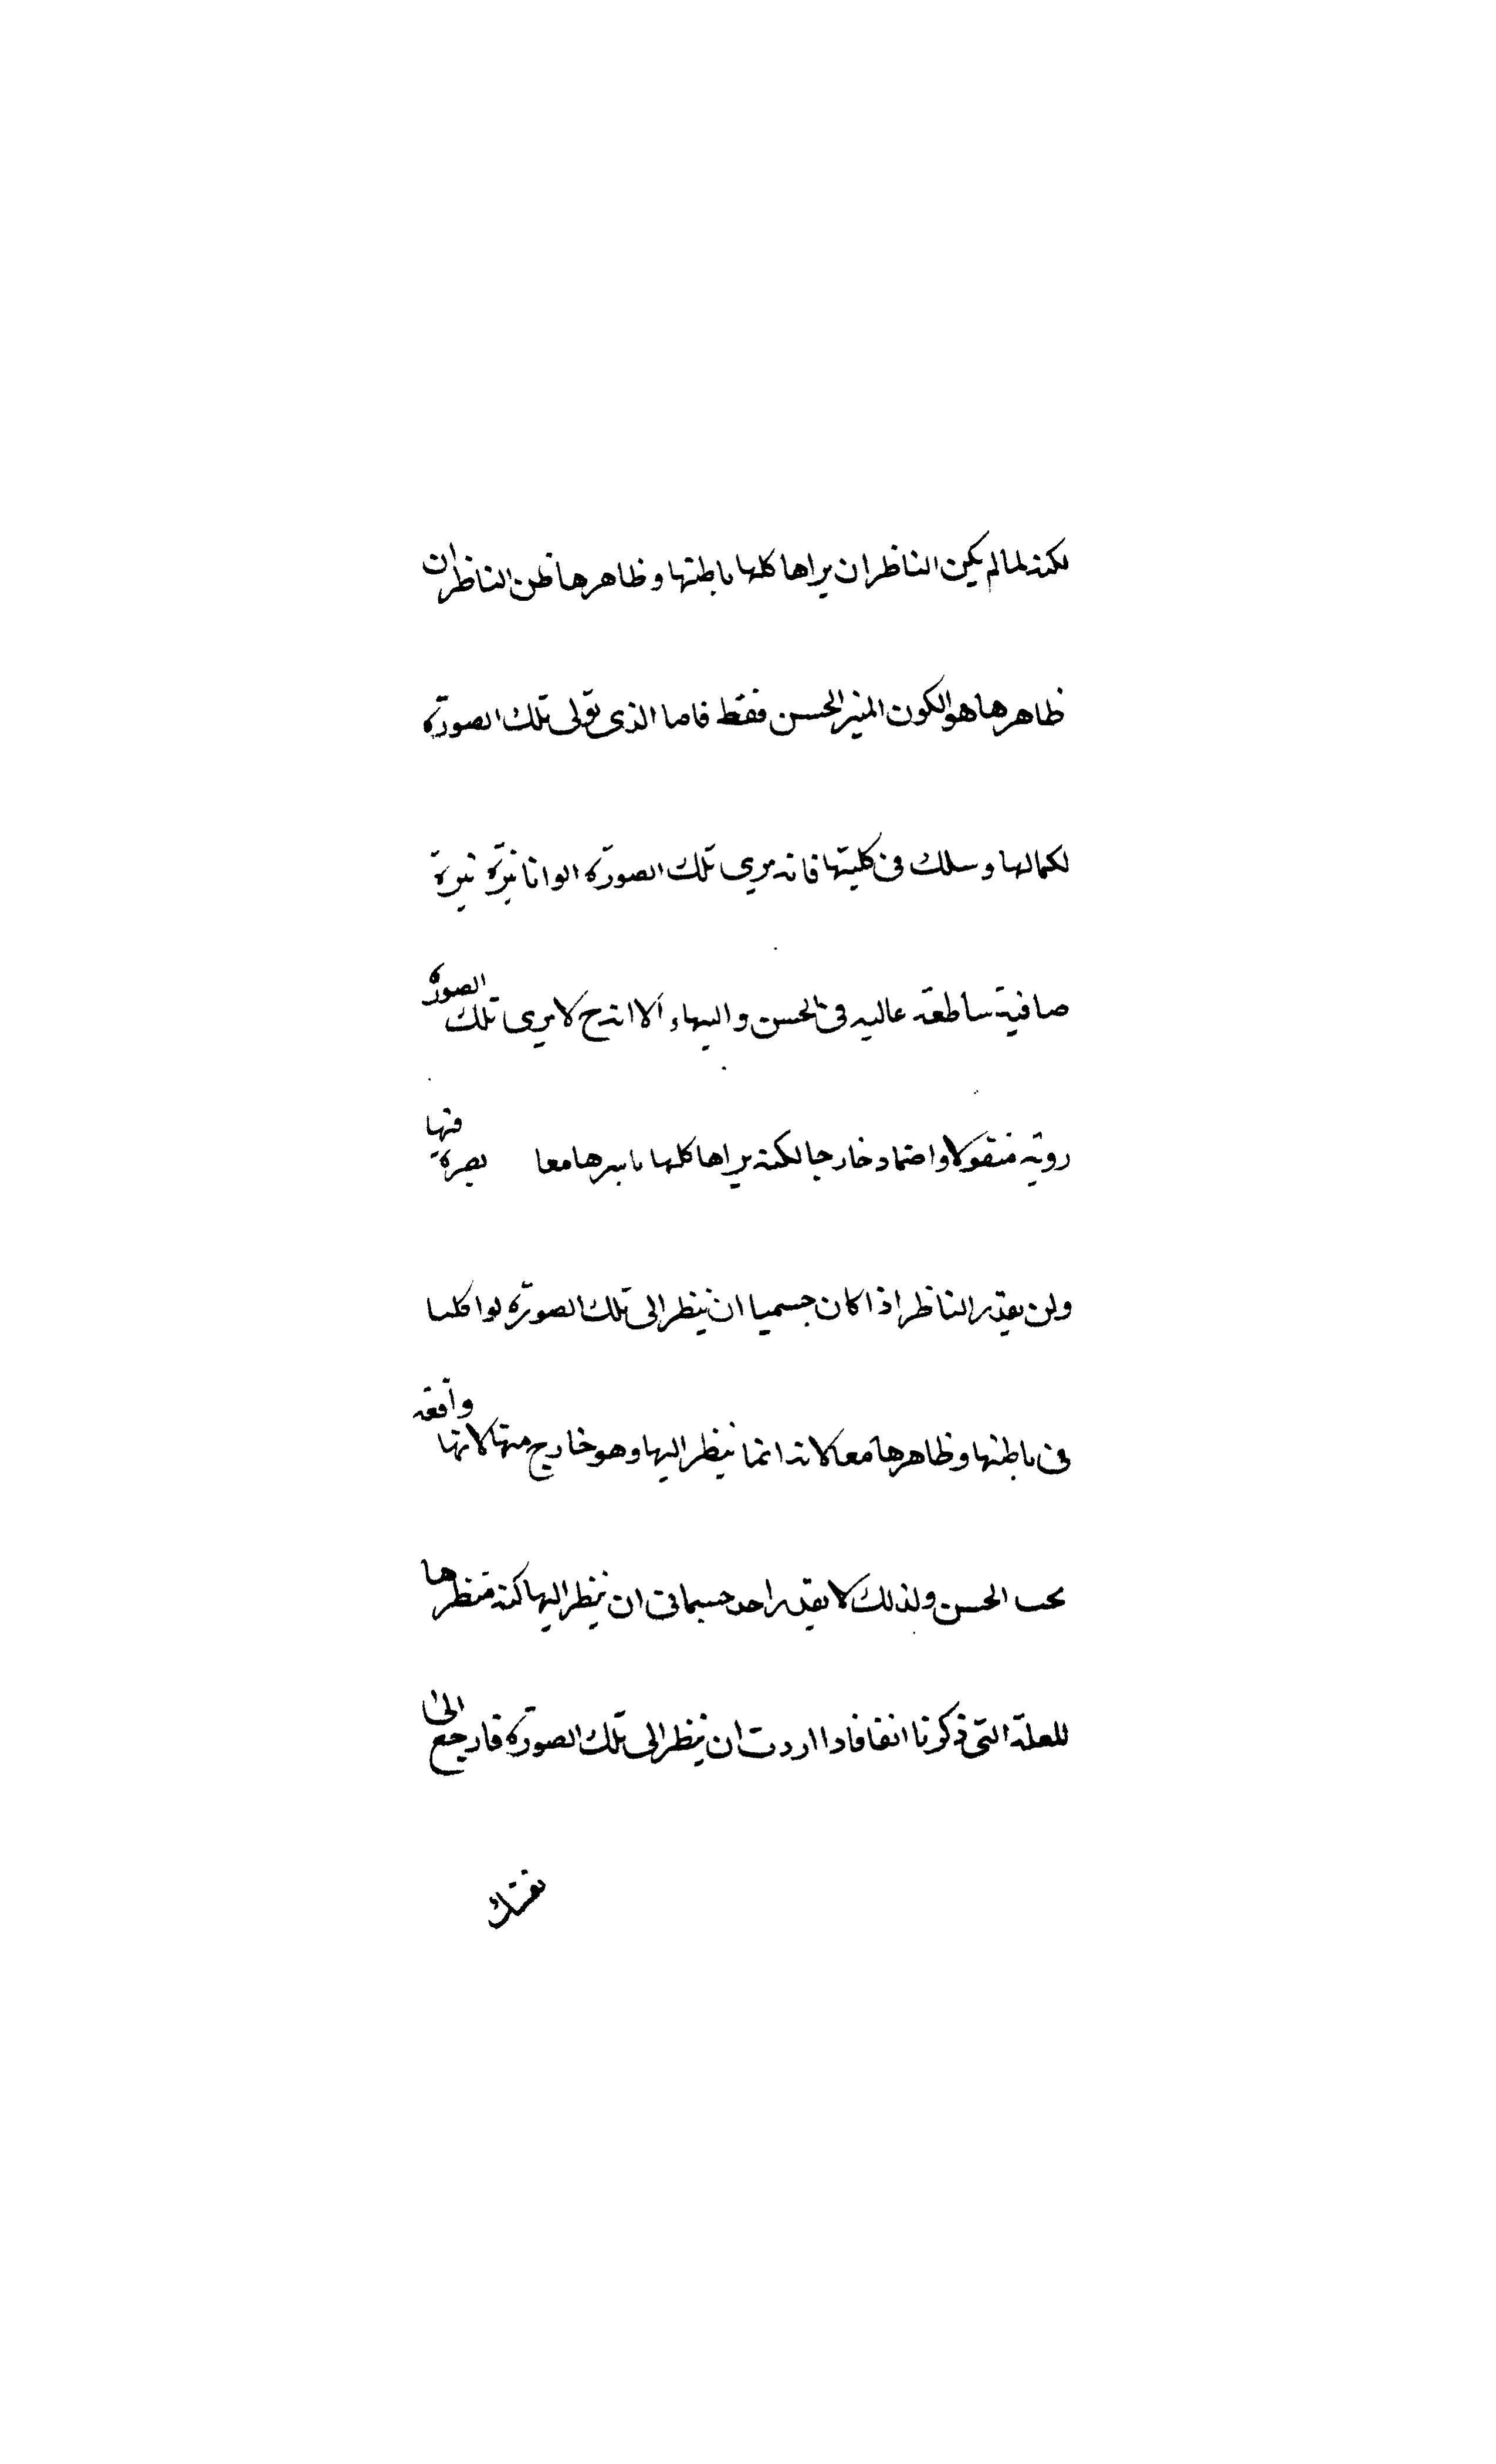 لكنه لما لم يكن الناظر ان يراها كلها باطنها و ظاهرها ظن الناظر ان
ظاهرها هو الكون المنير الحسن فقط فاما الذى تولى تلك الصورة
لكمالها و سلك فى كليتها فانه يرى تلك الصورة الوانا نيرة نيرة
صافية ساطعة عاليه فى الحسن و البهاء الا انه ح لا يرى تلك الصورة
روية منقولا و اضماد خارجا لكنه يراها كلها باسرها معا بصره فيها
ولن يقدر الناظر اذا كان جسميا ان ينظر الى تلك الصورة لوا كليا
فى باطنها و ظاهرها معا لانه انما ينظر اليها و هو خارج منها لانها واقعة
تحت الحسن ولذلك لا يقدر احد جسمانى ان ينظر اليها كنه منظرها
للعلة التى ذكرنا انفا فاذا اردت ان ينظر الى تلك الصورة فارجع الى
نفسك